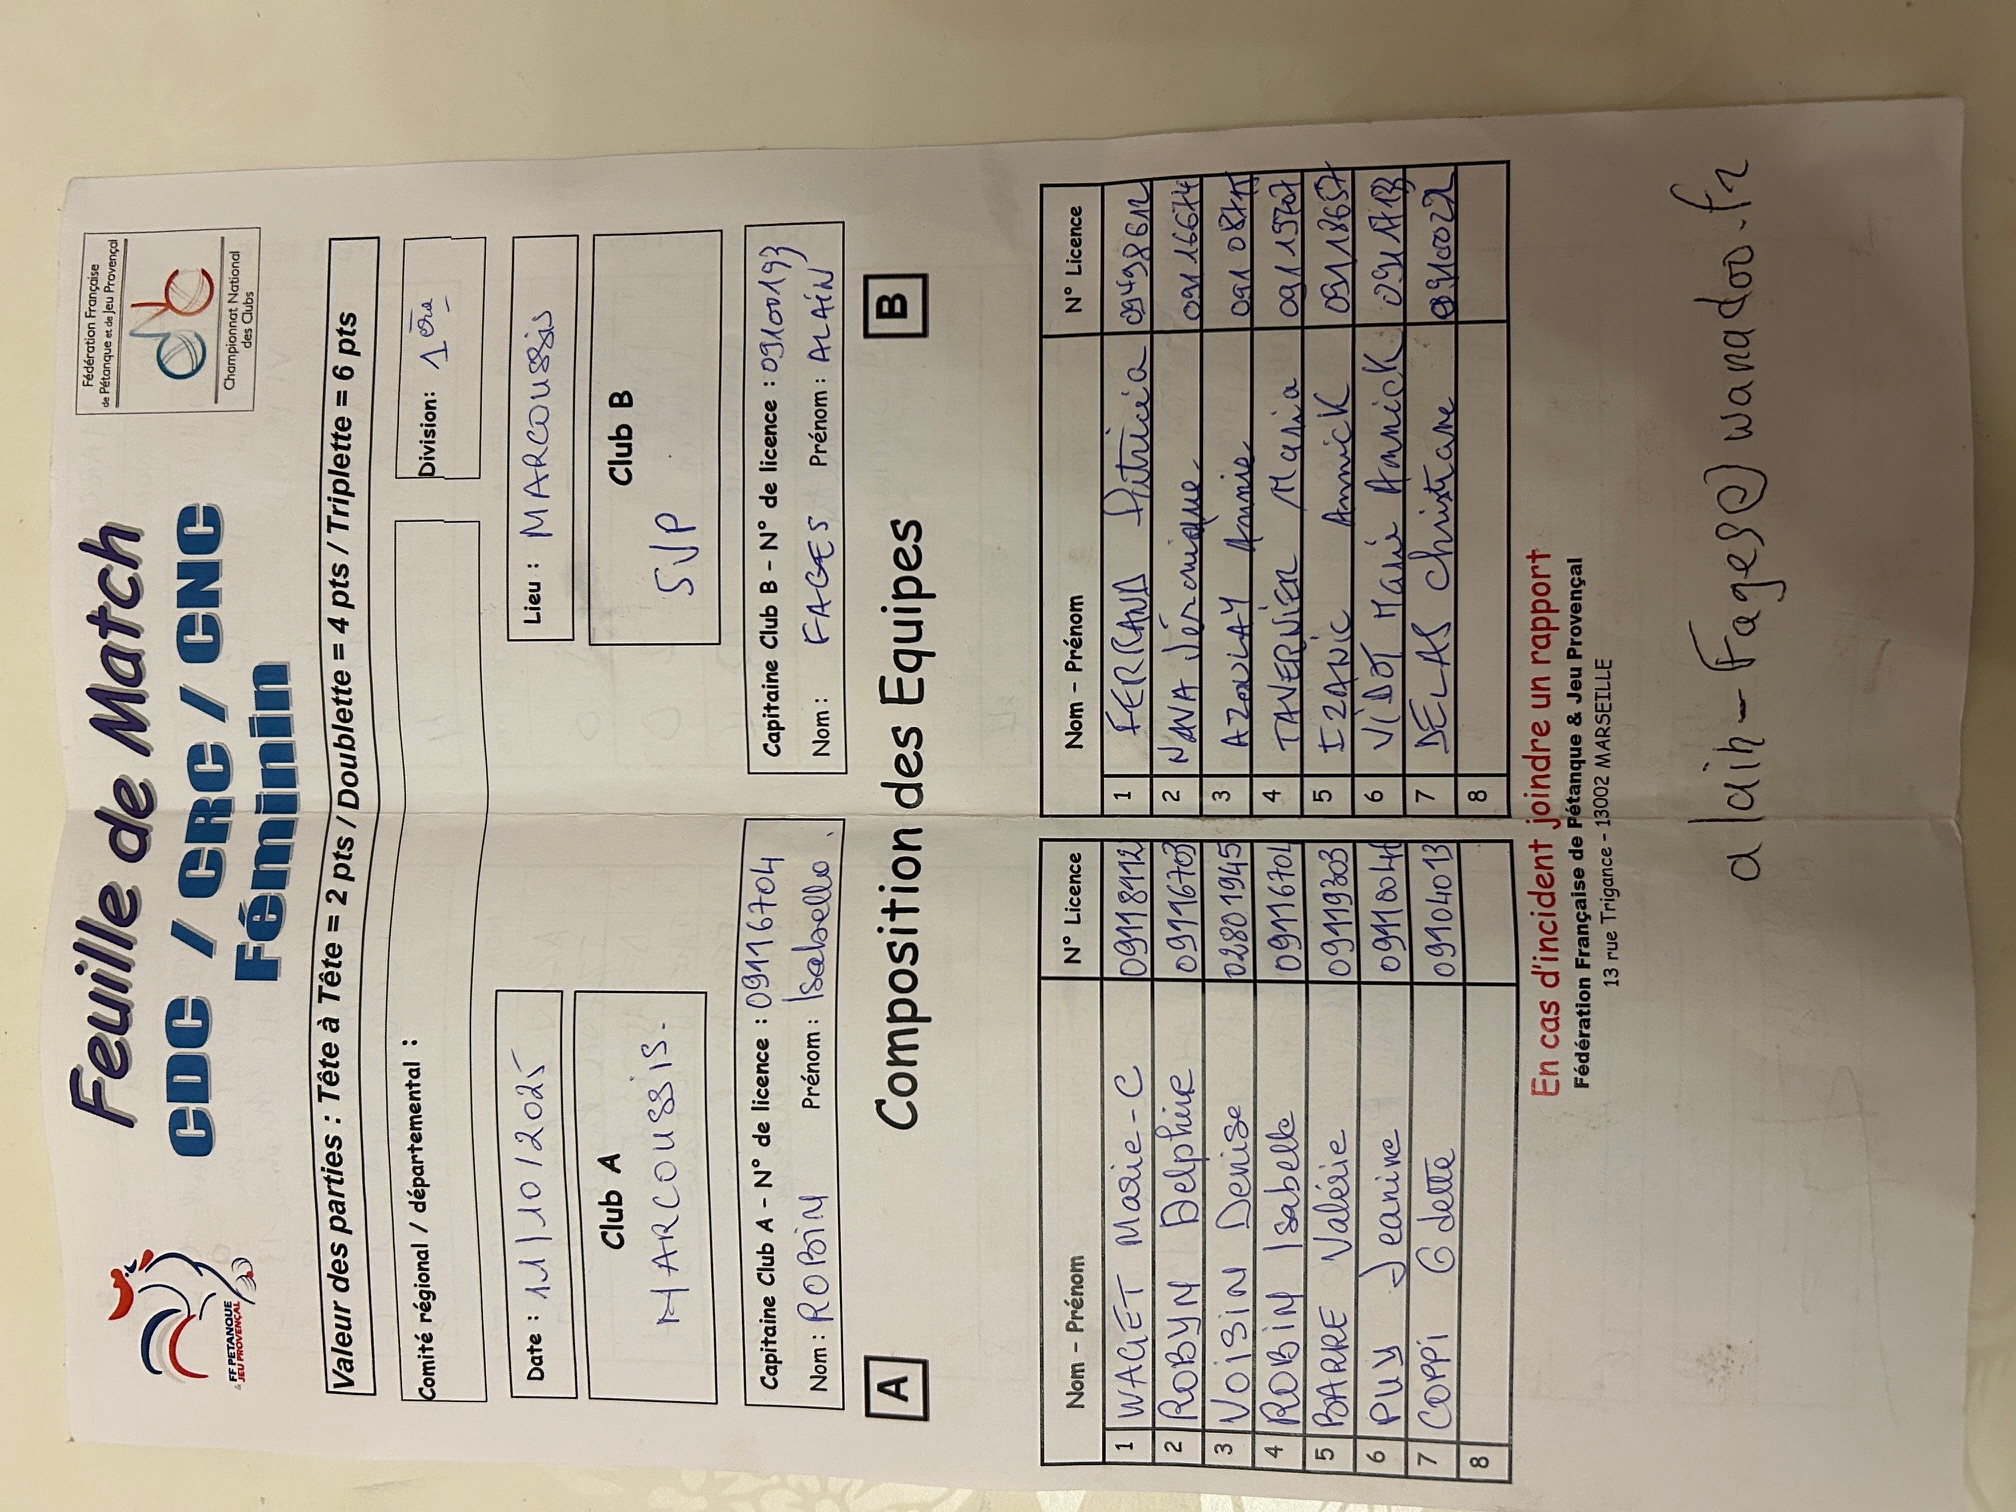 FF PETANQUE
& JEU PROVENÇAL
Feuille de Match
CDC / CRC / CNC
Féminin
Fédération Française
de Pétanque et de Jeu Provençal
Championnat National
des Clubs
Valeur des parties : Tête à Tête = 2 pts / Doublette = 4 pts / Triplette = 6 pts
Comité régional / départemental :
Division: 1ère
Date : 11/10/2025
Lieu : MARCOUSSIS
Club A
MARCOUSSIS.
Club B
SVP
Capitaine Club A - N° de licence : 09116704
Nom : ROBIN Prénom : Isabelle.
Capitaine Club B - N° de licence : 09100193
Nom : FAGES Prénom : ALAIN
A Composition des Equipes B
Nom - Prénom N° Licence
1 WAGET Marie-C 09118912
2 ROBYN Delphine 09116703
3 VOISIN Denise 02801945
4 ROBIN Isabelle 09116704
5 BARRE Valérie 09119303
6 PUY Jeanine
7 COPPI Odette 09104013
8
Nom - Prénom N° Licence
1 FERRAND Patricia 09498612
2 NAVA Véronique 09116674
3 AZOULAY Annie
4 TAVERNIER Maria
5 IZANIC Annick 09118657
6 VIDOT Marie Annick
7 DELAS Christiane
8
En cas d'incident joindre un rapport
Fédération Française de Pétanque & Jeu Provençal
13 rue Trigance - 13002 MARSEILLE
alain-Fages@wanadoo.fr